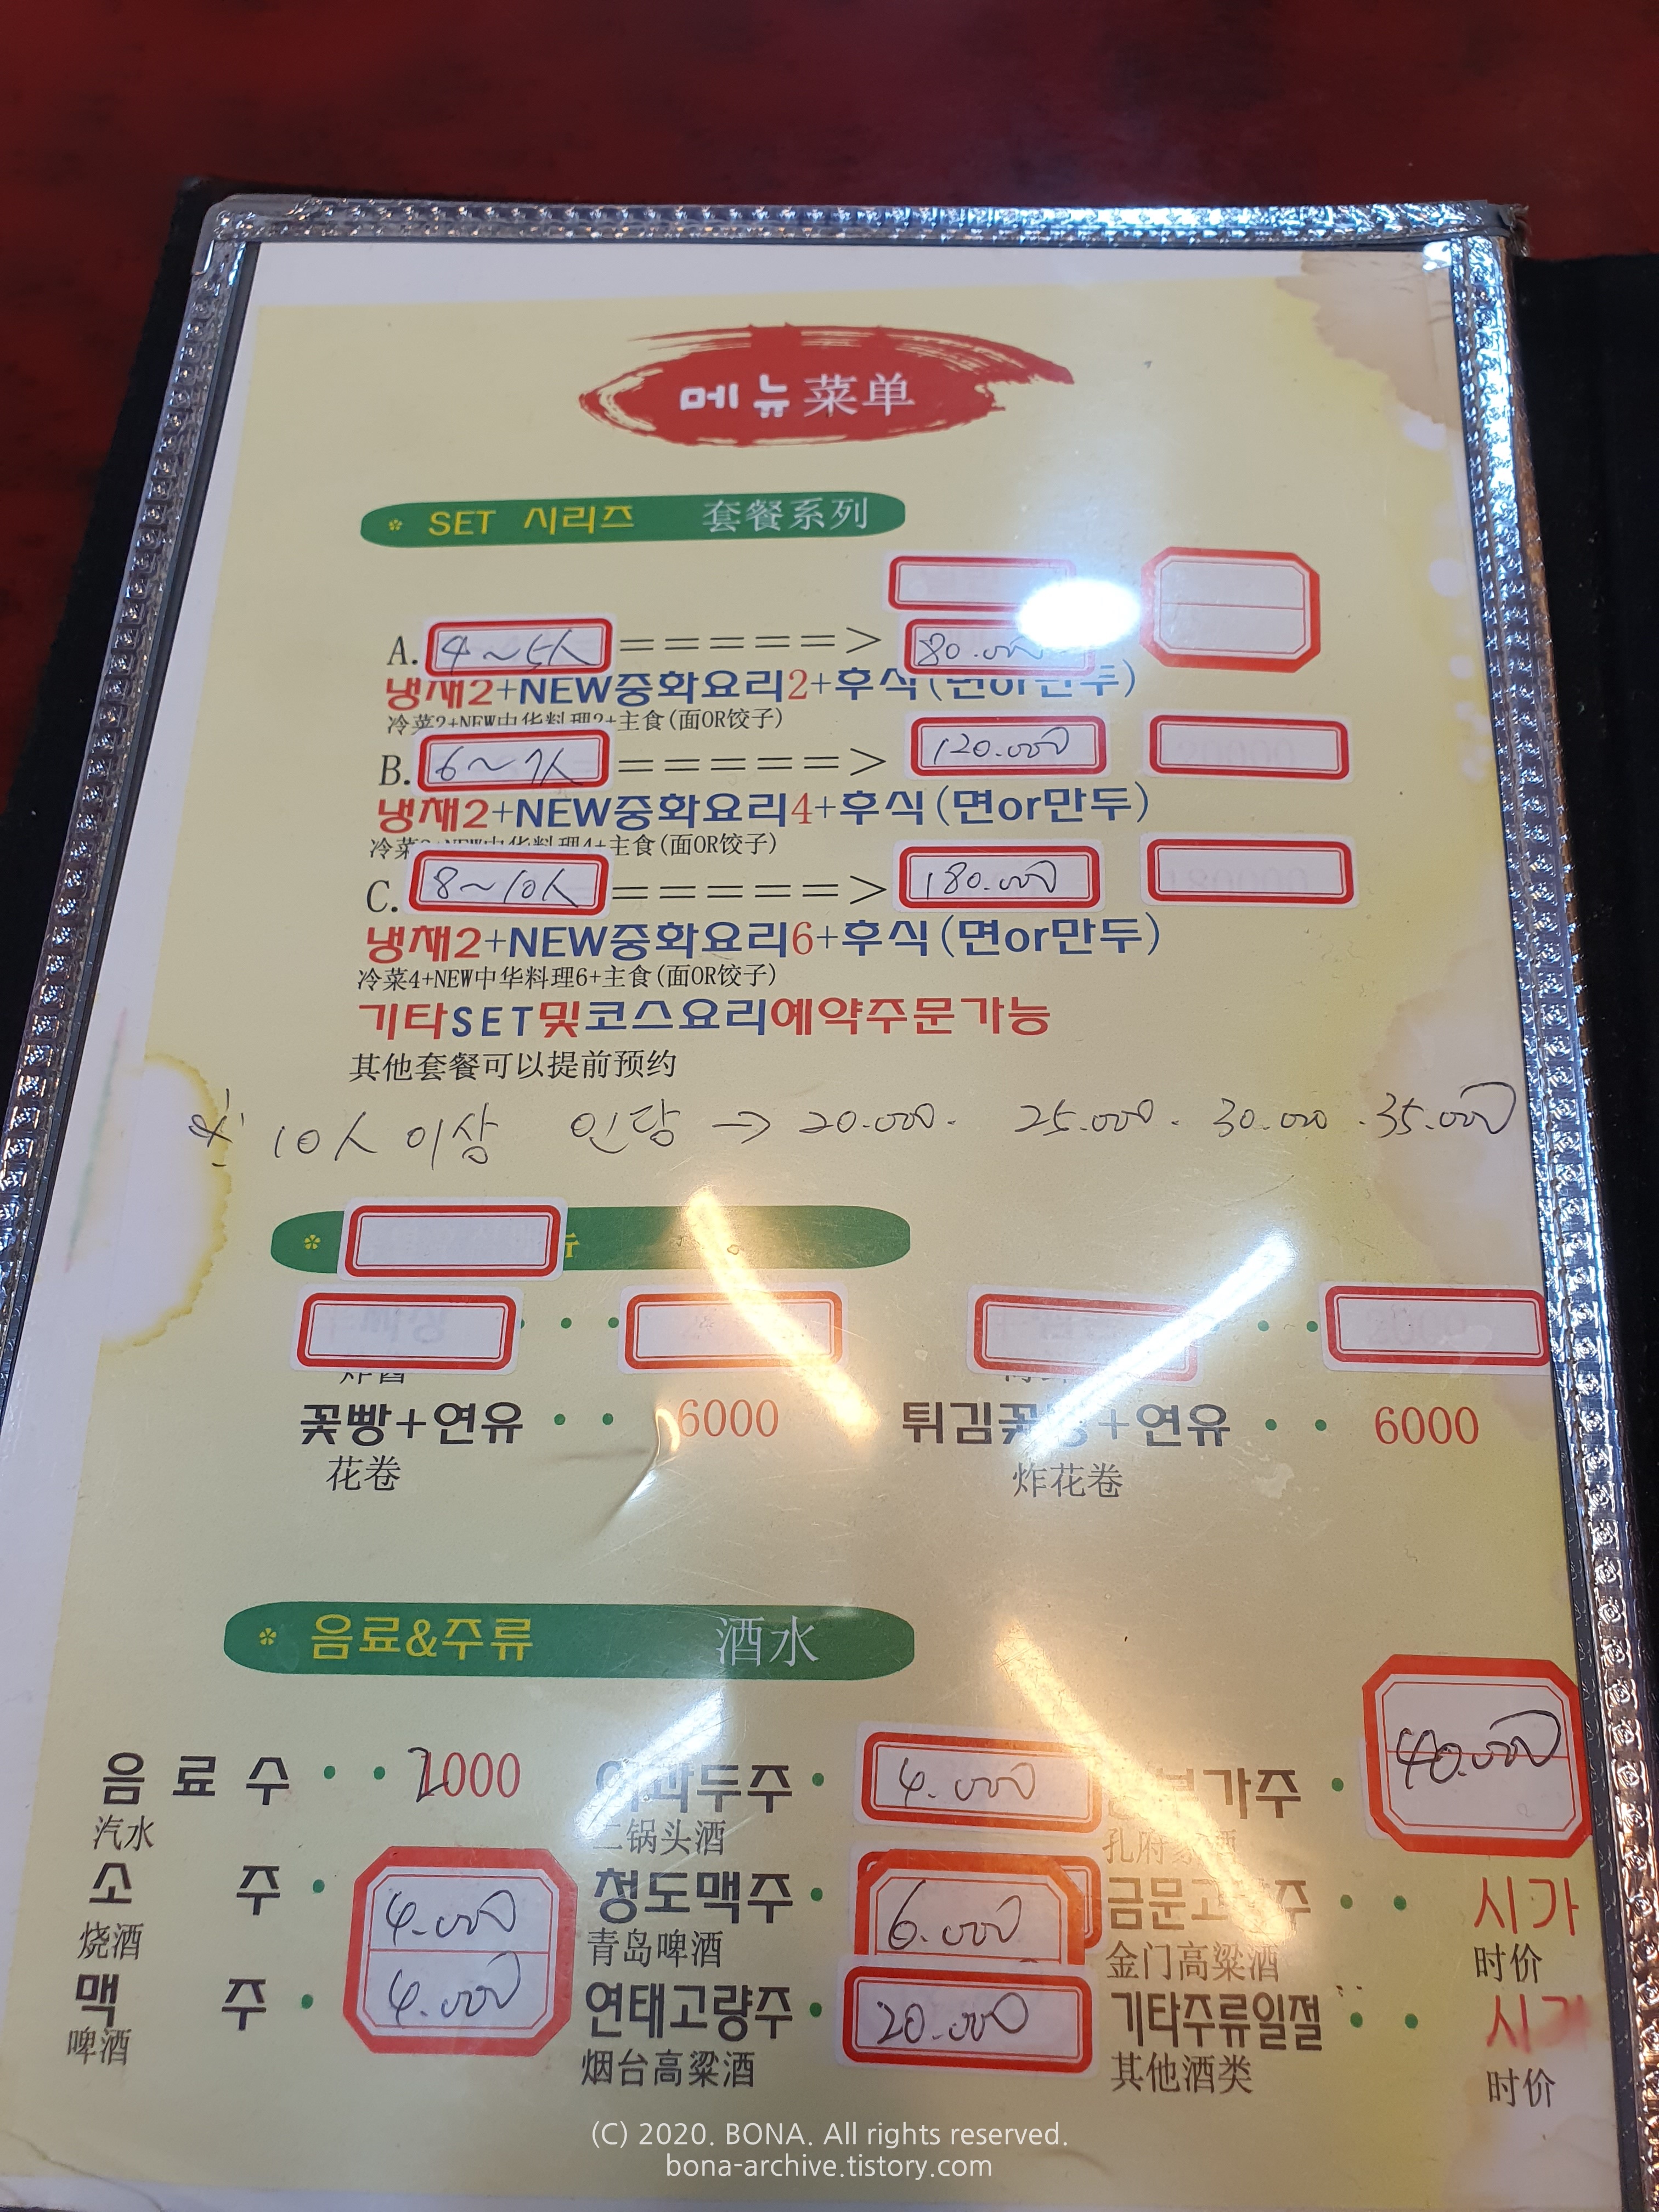 메뉴 菜单
SET 시리즈 套餐系列
A. 4~5人 =====> 80.000
냉채2+NEW중화요리2+후식(면or만두)
冷菜2+NEW中华料理2+主食(面OR饺子)
B. 6~7人 =====> 120.000
냉채2+NEW중화요리4+후식(면or만두)
冷菜 +NEW中华料理4+主食(面OR饺子)
C. 8~10人 =====> 180.000
냉채2+NEW중화요리6+후식(면or만두)
冷菜4+NEW中华料理6+主食(面OR饺子)
기타SET및코스요리예약주문가능
其他套餐可以提前预约
※ 10人 이상 인당 → 20.000. 25.000. 30.000. 35.000
꽃빵+연유 · · 6000 튀김꽃빵+연유 · · 6000
花卷 炸花卷
음료&주류 酒水
음료수 · · 2000 이과두주 · 4.000 공부가주 · 40.000
汽水 二锅头酒 孔府家酒
소주 · 4.000 청도맥주 · 6.000 금문고량주 · · 시가
烧酒 青岛啤酒 金门高粱酒 时价
맥주 · 4.000 연태고량주 · 20.000 기타주류일절 · · 시가
啤酒 烟台高粱酒 其他酒类 时价
(C) 2020. BONA. All rights reserved.
bona-archive.tistory.com